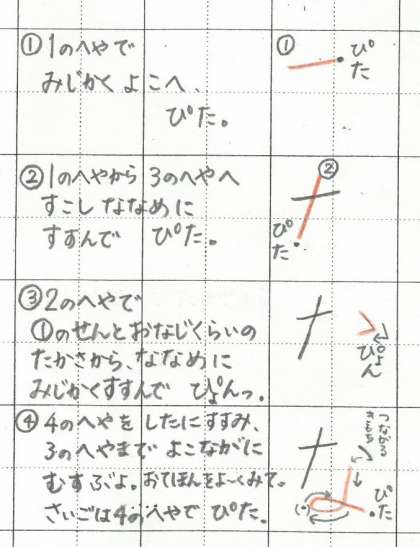 ①1のへやで
みじかくよこへ、
ぴた。
①
ぴた
②1のへやから3のへやへ
すこしななめに
すすんで ぴた。
②
ぴた
③2のへやで
①のせんとおなじくらいの
たかさから、ななめに
みじかくすすんで ぴょんっ。
ぴょん
④4のへやをしたにすすみ、
3のへやまでよこながに
むすぶよ。おてほんをよ〜くみて。
さいごは4のへやで ぴた。
つながる
きもち
ぴた